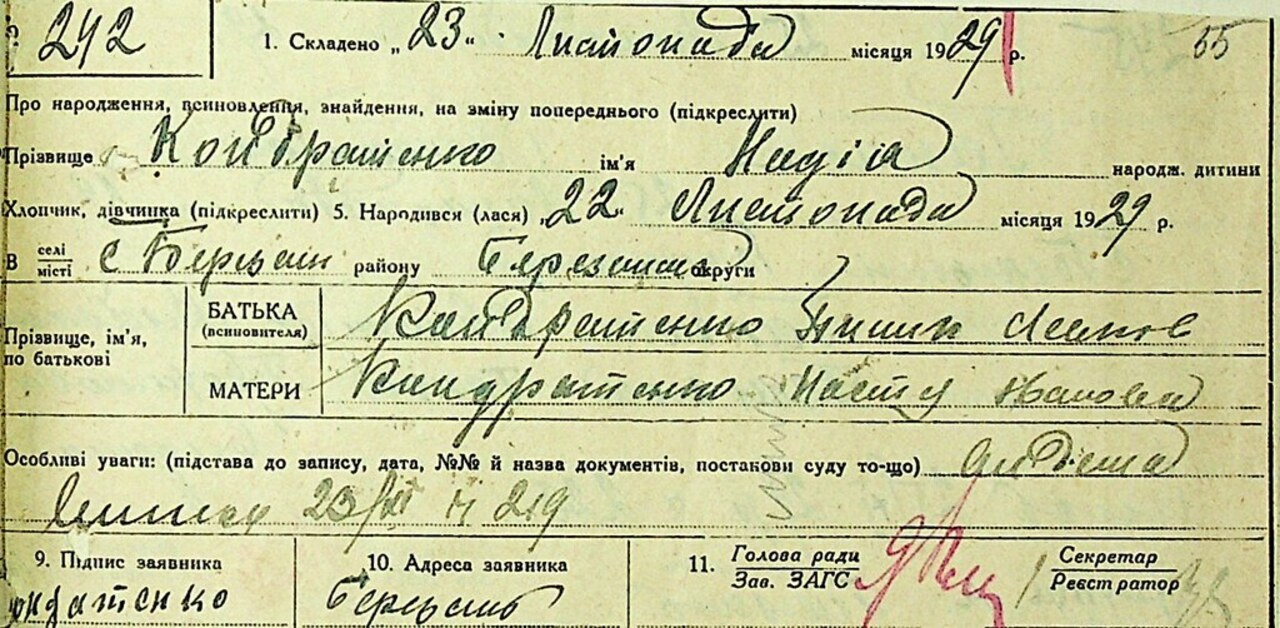 242 1. Складено „23" Листопада місяця 1929 р. 55
Про народження, всиновлення, знайдення, на зміну попереднього (підкреслити)
Прізвище Кондратенко ім'я Надія народж. дитини
Хлопчик, дівчинка (підкреслити) 5. Народився (лася) „22" Листопада місяця 1929 р.
В селі/місті с Березань району Березанськ округи
Прізвище, ім'я, по батькові
БАТЬКА (всиновителя) Кондратенко
МАТЕРИ Кондратенко Настя Івановна
Особливі уваги: (підстава до запису, дата, №№ й назва документів, постакови суду то-що)
23/XI 219
9. Підпис заявника 10. Адреса заявника 11. Голова ради Секретар
Зав. ЗАГС Реєстратор
ондатенко Березань